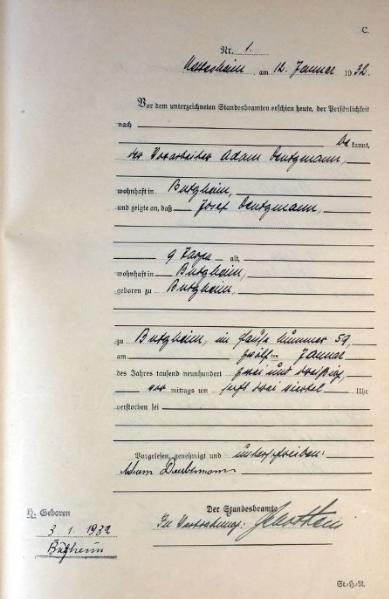 C.
Nr. 1.
am 12. Januar 1932.
Vor dem unterzeichneten Standesbeamten erschien heute, der Persönlichkeit
nach
be kannt,
der Vorarbeiter Adam
wohnhaft in Butzheim,
und zeigte an, daß Josef
9 alt,
wohnhaft in Butzheim,
geboren zu Butzheim,
zu Butzheim, im Hause Nummer 59,
am zwölften Januar
des Jahres tausend neunhundert zwei und dreißig,
vor mittags um drei viertel Uhr
verstorben sei
Vorgelesen, genehmigt und unterschrieben:
Adam
Der Standesbeamte
In Vertretung:
H. Geboren
3.1.1932
Butzheim
St.-H.-A.